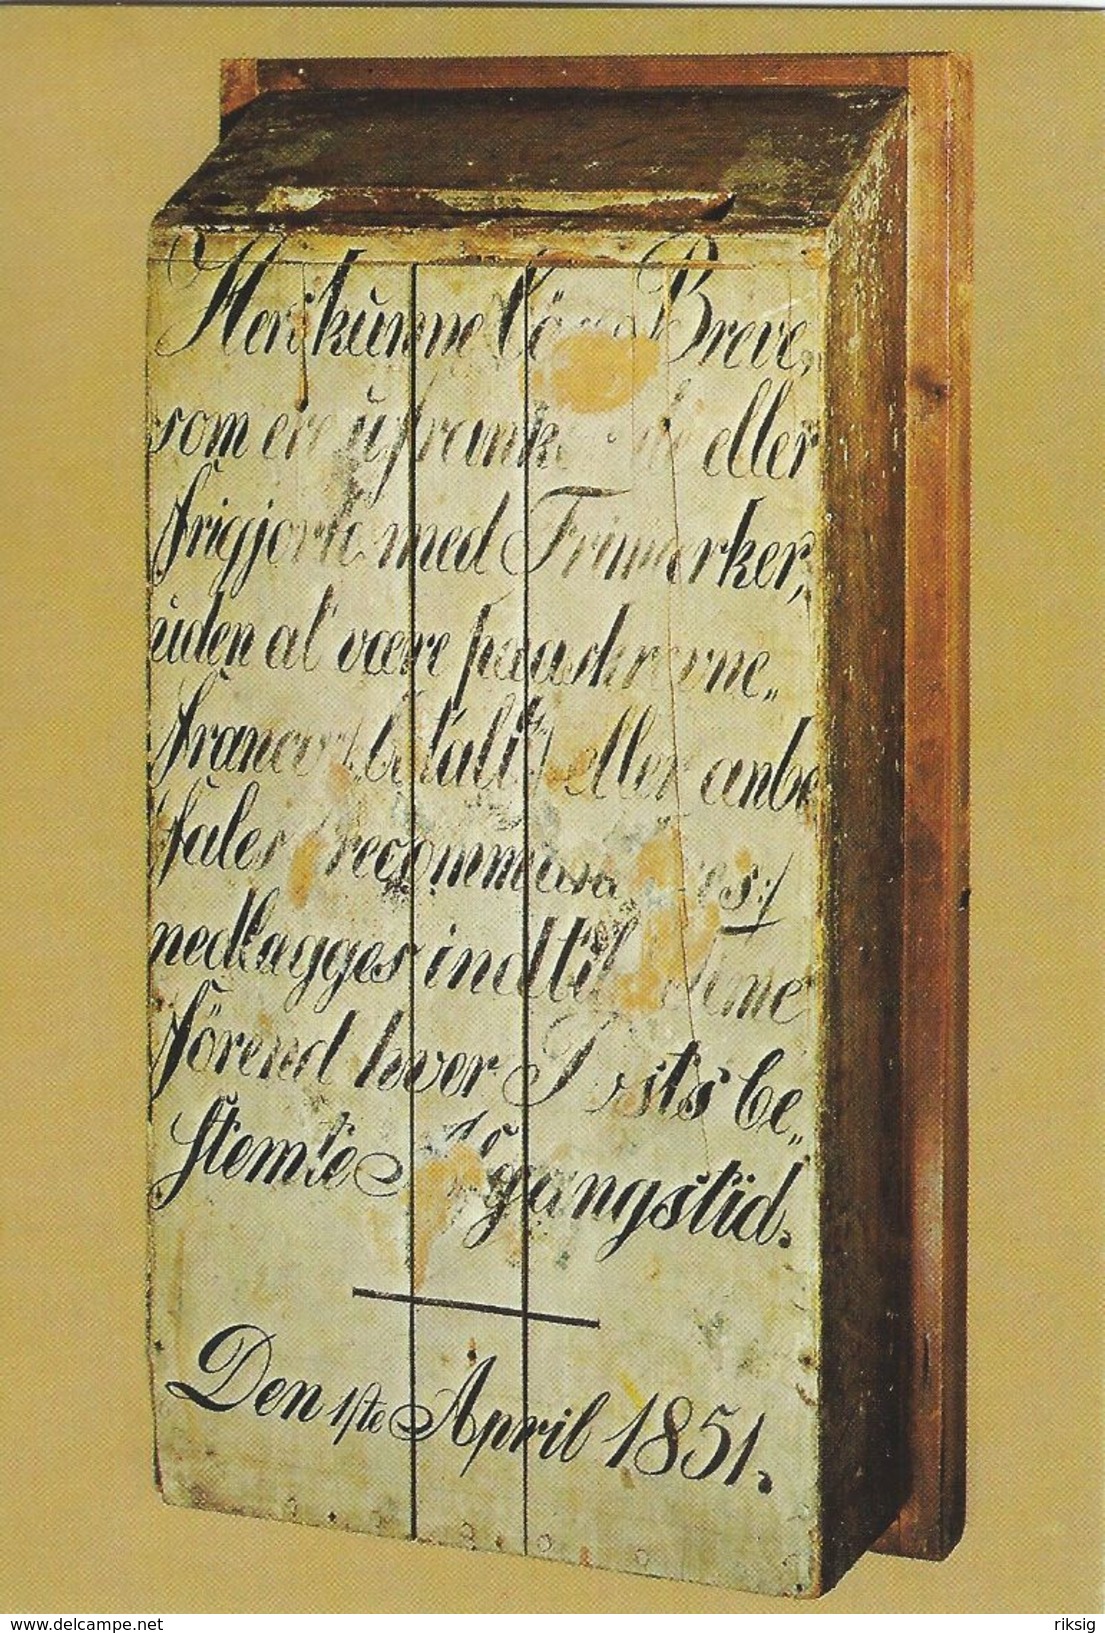 Her kunne Breve,
som ere ufrankerede eller
frigjorte med Frimærker,
uden at være paaskrevne„
franco /:betalt:/ eller anbe
fales /:recommanderes:/
nedlægges indtil time
förend hver Posts be„
stemte Afgangstid.
Den 1ste April 1851.
www.delcampe.net
riksig